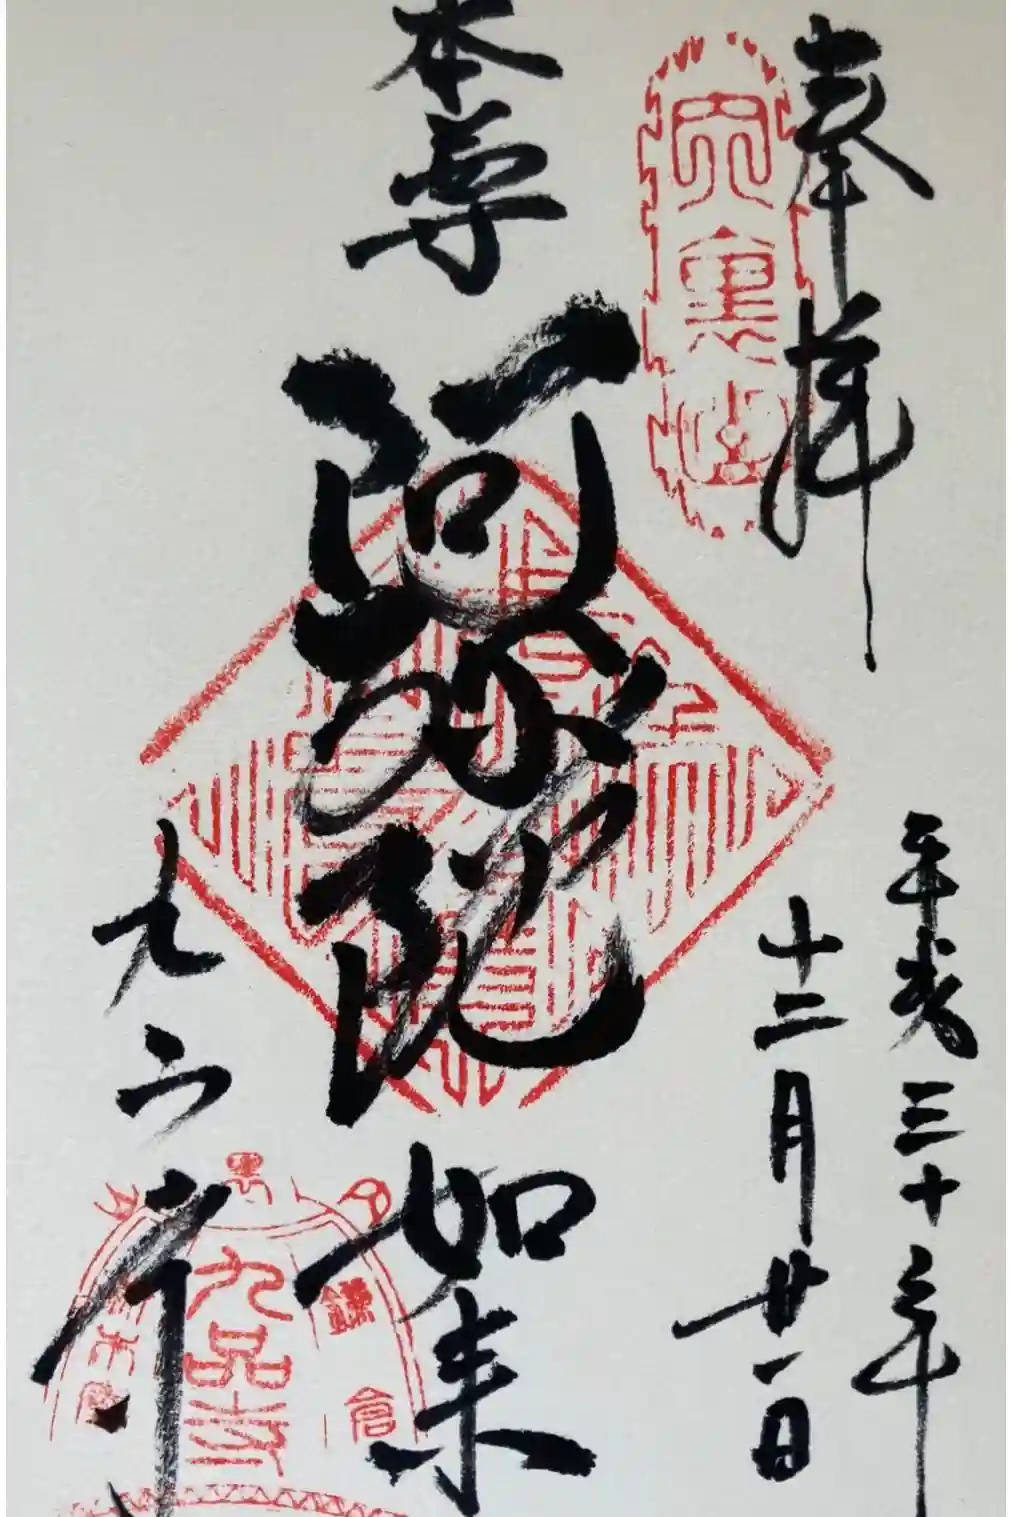 奉拝
平成三十年
十二月廿一日
本尊
阿弥陀
如来
九品寺
内裏山
九品寺
鎌倉